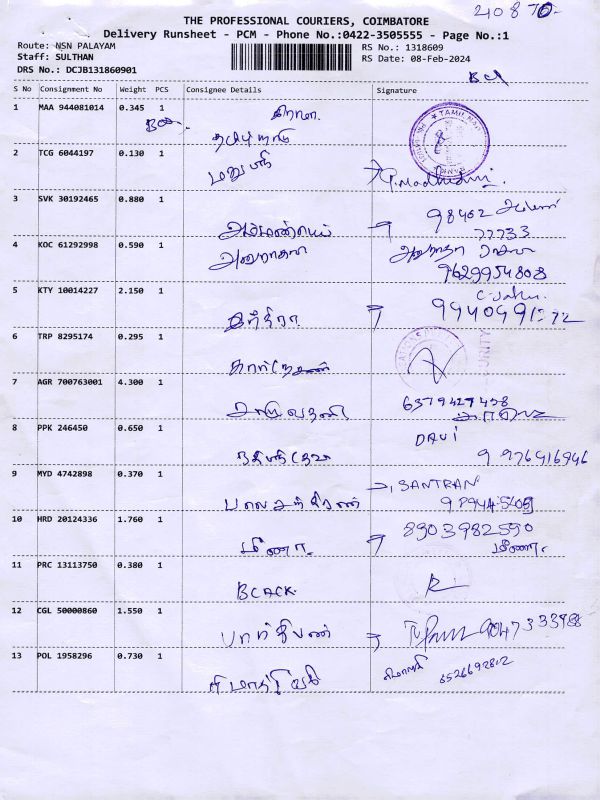 210870-
THE PROFESSIONAL COURIERS, COIMBATORE
Delivery Runsheet - PCM - Phone No.:0422-3505555 - Page No.:1
Route: NSN PALAYAM
RS No.: 1318609
Staff: SULTHAN
RS Date: 08-Feb-2024
DRS No.: DCJB131860901
S No Consignment No Weight PCS Consignee Details Signature
1 MAA 944081014 0.345 1
2 TCG 6044197 0.130 1 மதுமதி P. Madhu
3 SVK 30192465 0.880 1 98402 77733
4 KOC 61292998 0.590 1 அனுராதா அனுராதா 9629954808
5 KTY 10014227 2.150 1 இந்திரா
6 TRP 8295174 0.295 1
7 AGR 700763001 4.300 1 6379427438
8 PPK 246450 0.650 1 DAVI 9 976416946
9 MYD 4742898 0.370 1 SANTRAN
10 HRD 20124336 1.760 1 மீனா. 8903982590 மீனா.
11 PRC 13113750 0.380 1 BCACK.
12 CGL 50000860 1.550 1 பார்திபன் 9047333988
13 POL 1958296 0.730 1 6526692812